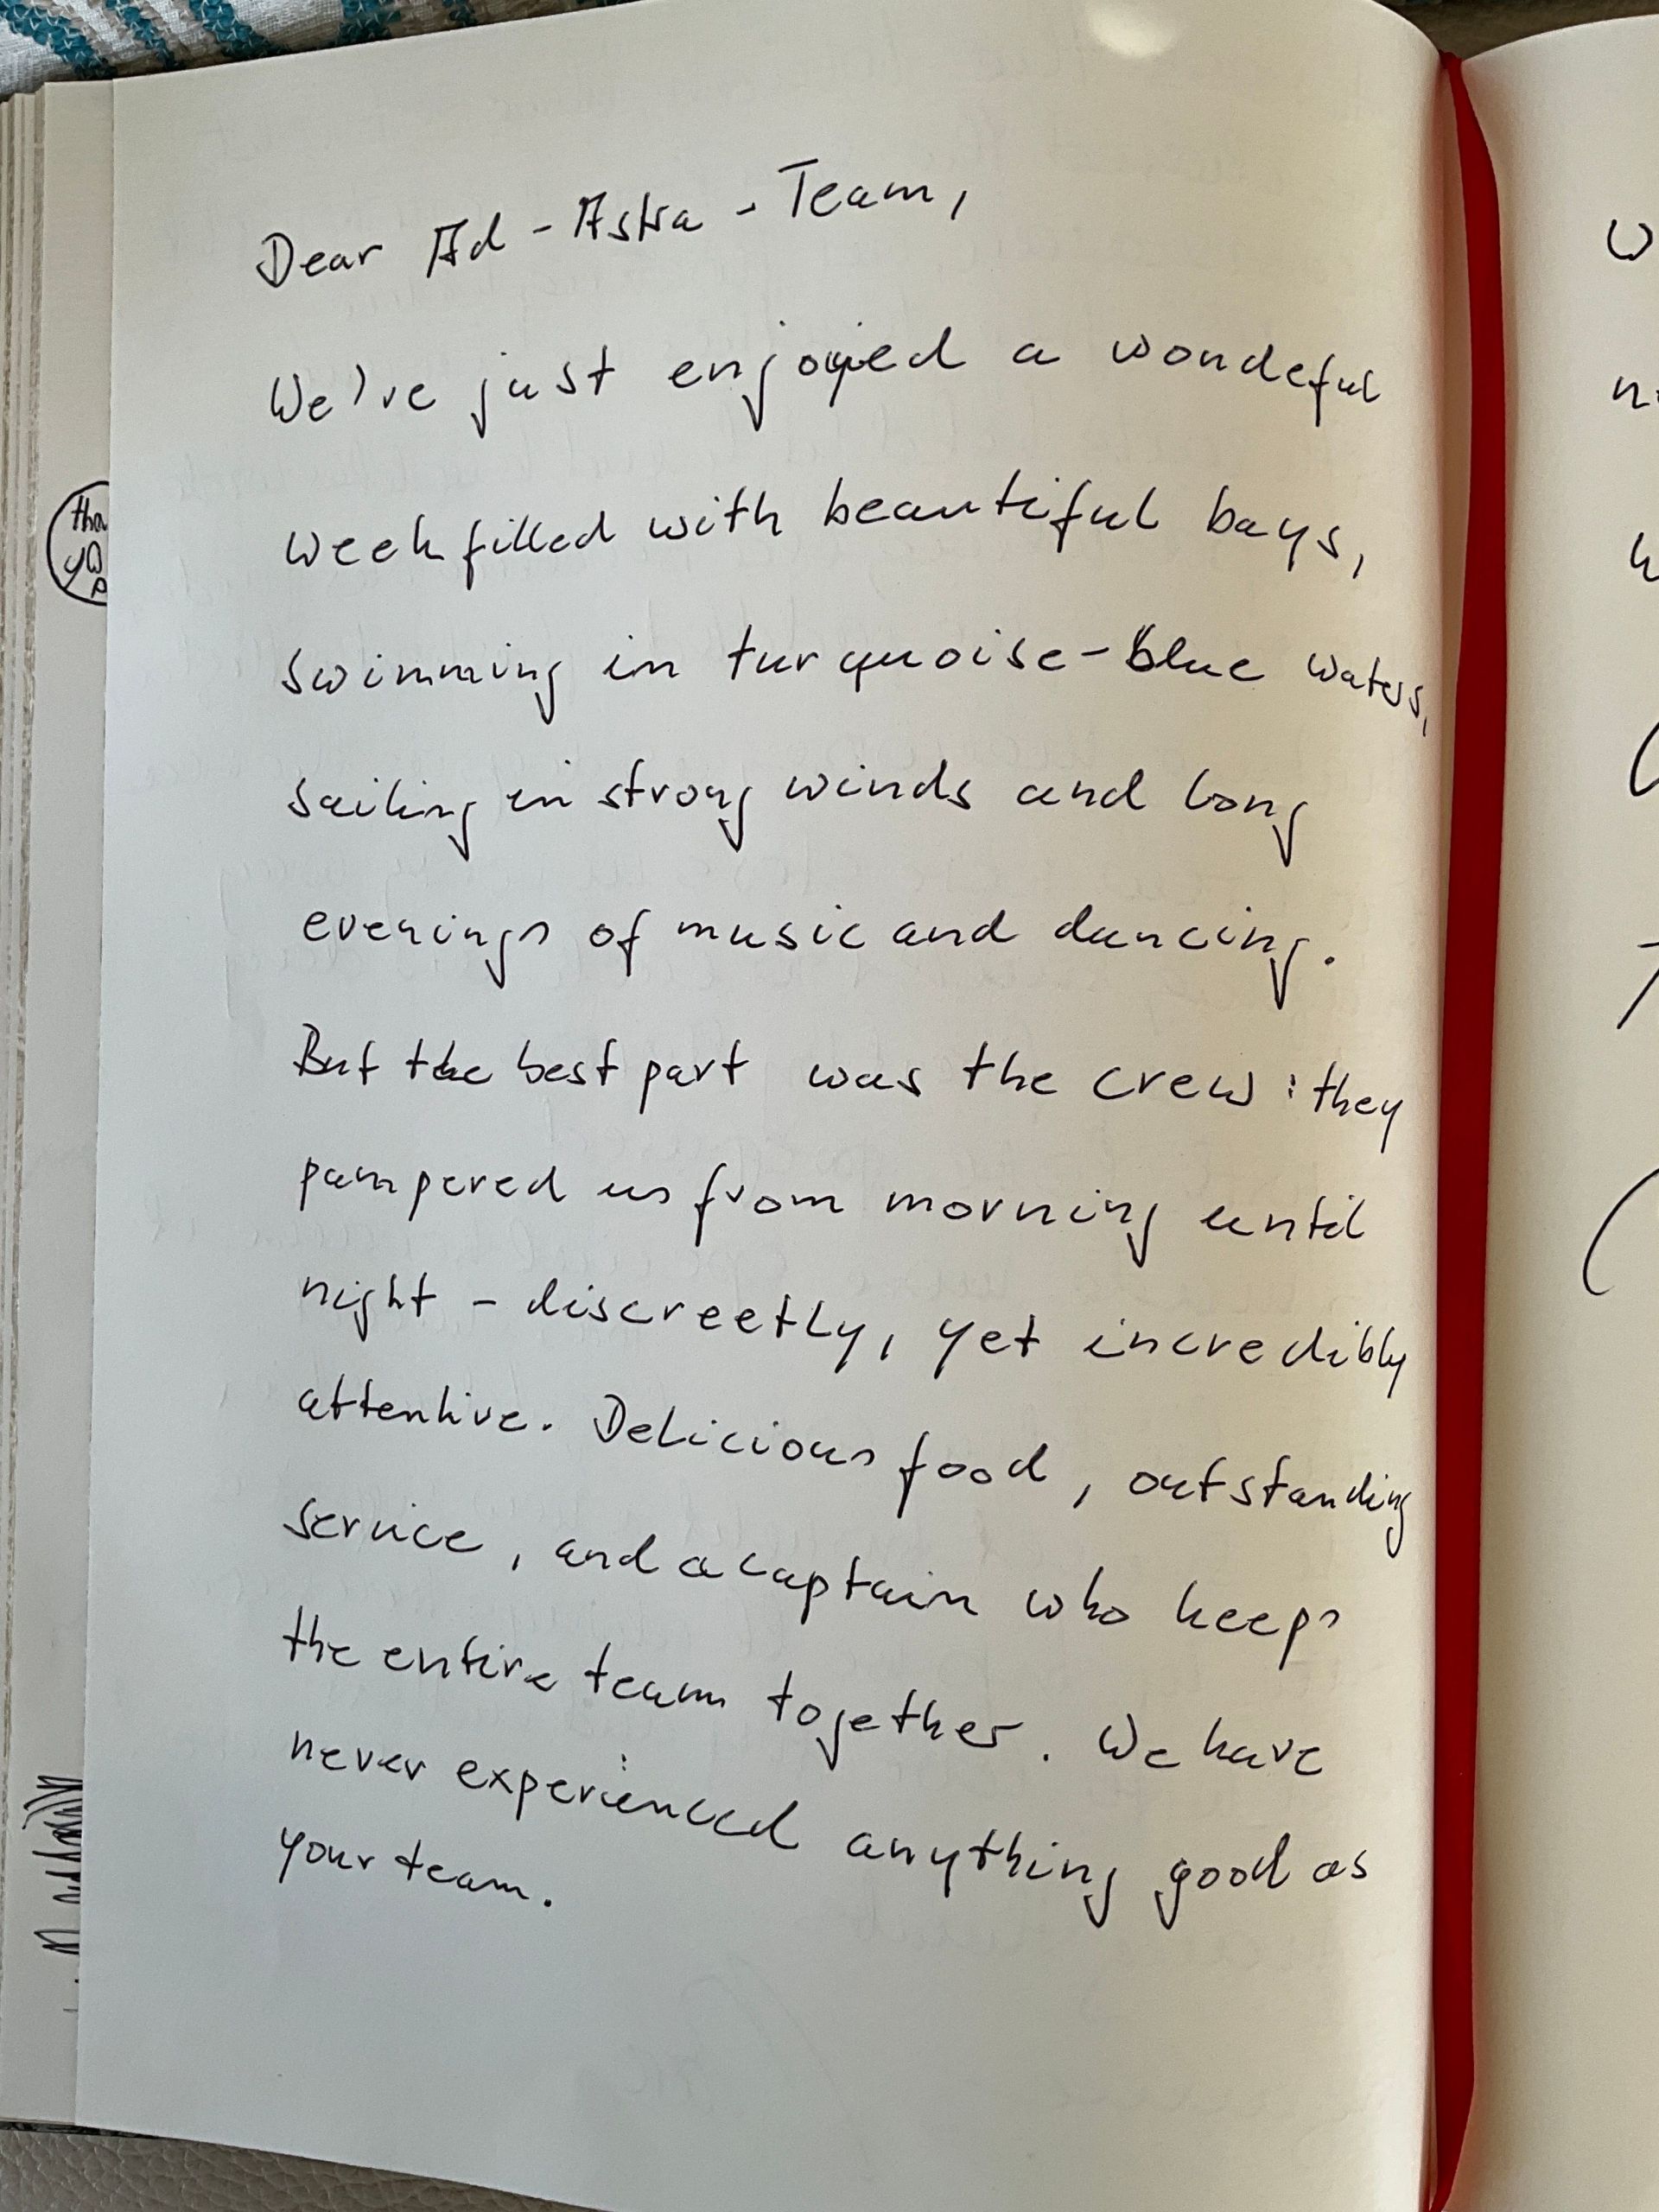 Dear Ad-Astra-Team,
We've just enjoyed a wondeful
week filled with beautiful bays,
swimming in turquoise-blue waters,
sailing in strong winds and long
evenings of music and dancing.
But the best part was the crew: they
pampered us from morning until
night - discreetly, yet incredibly
attentive. Delicious food, outstanding
service, and a captain who keeps
the entire team together. We have
never experienced anything good as
your team.